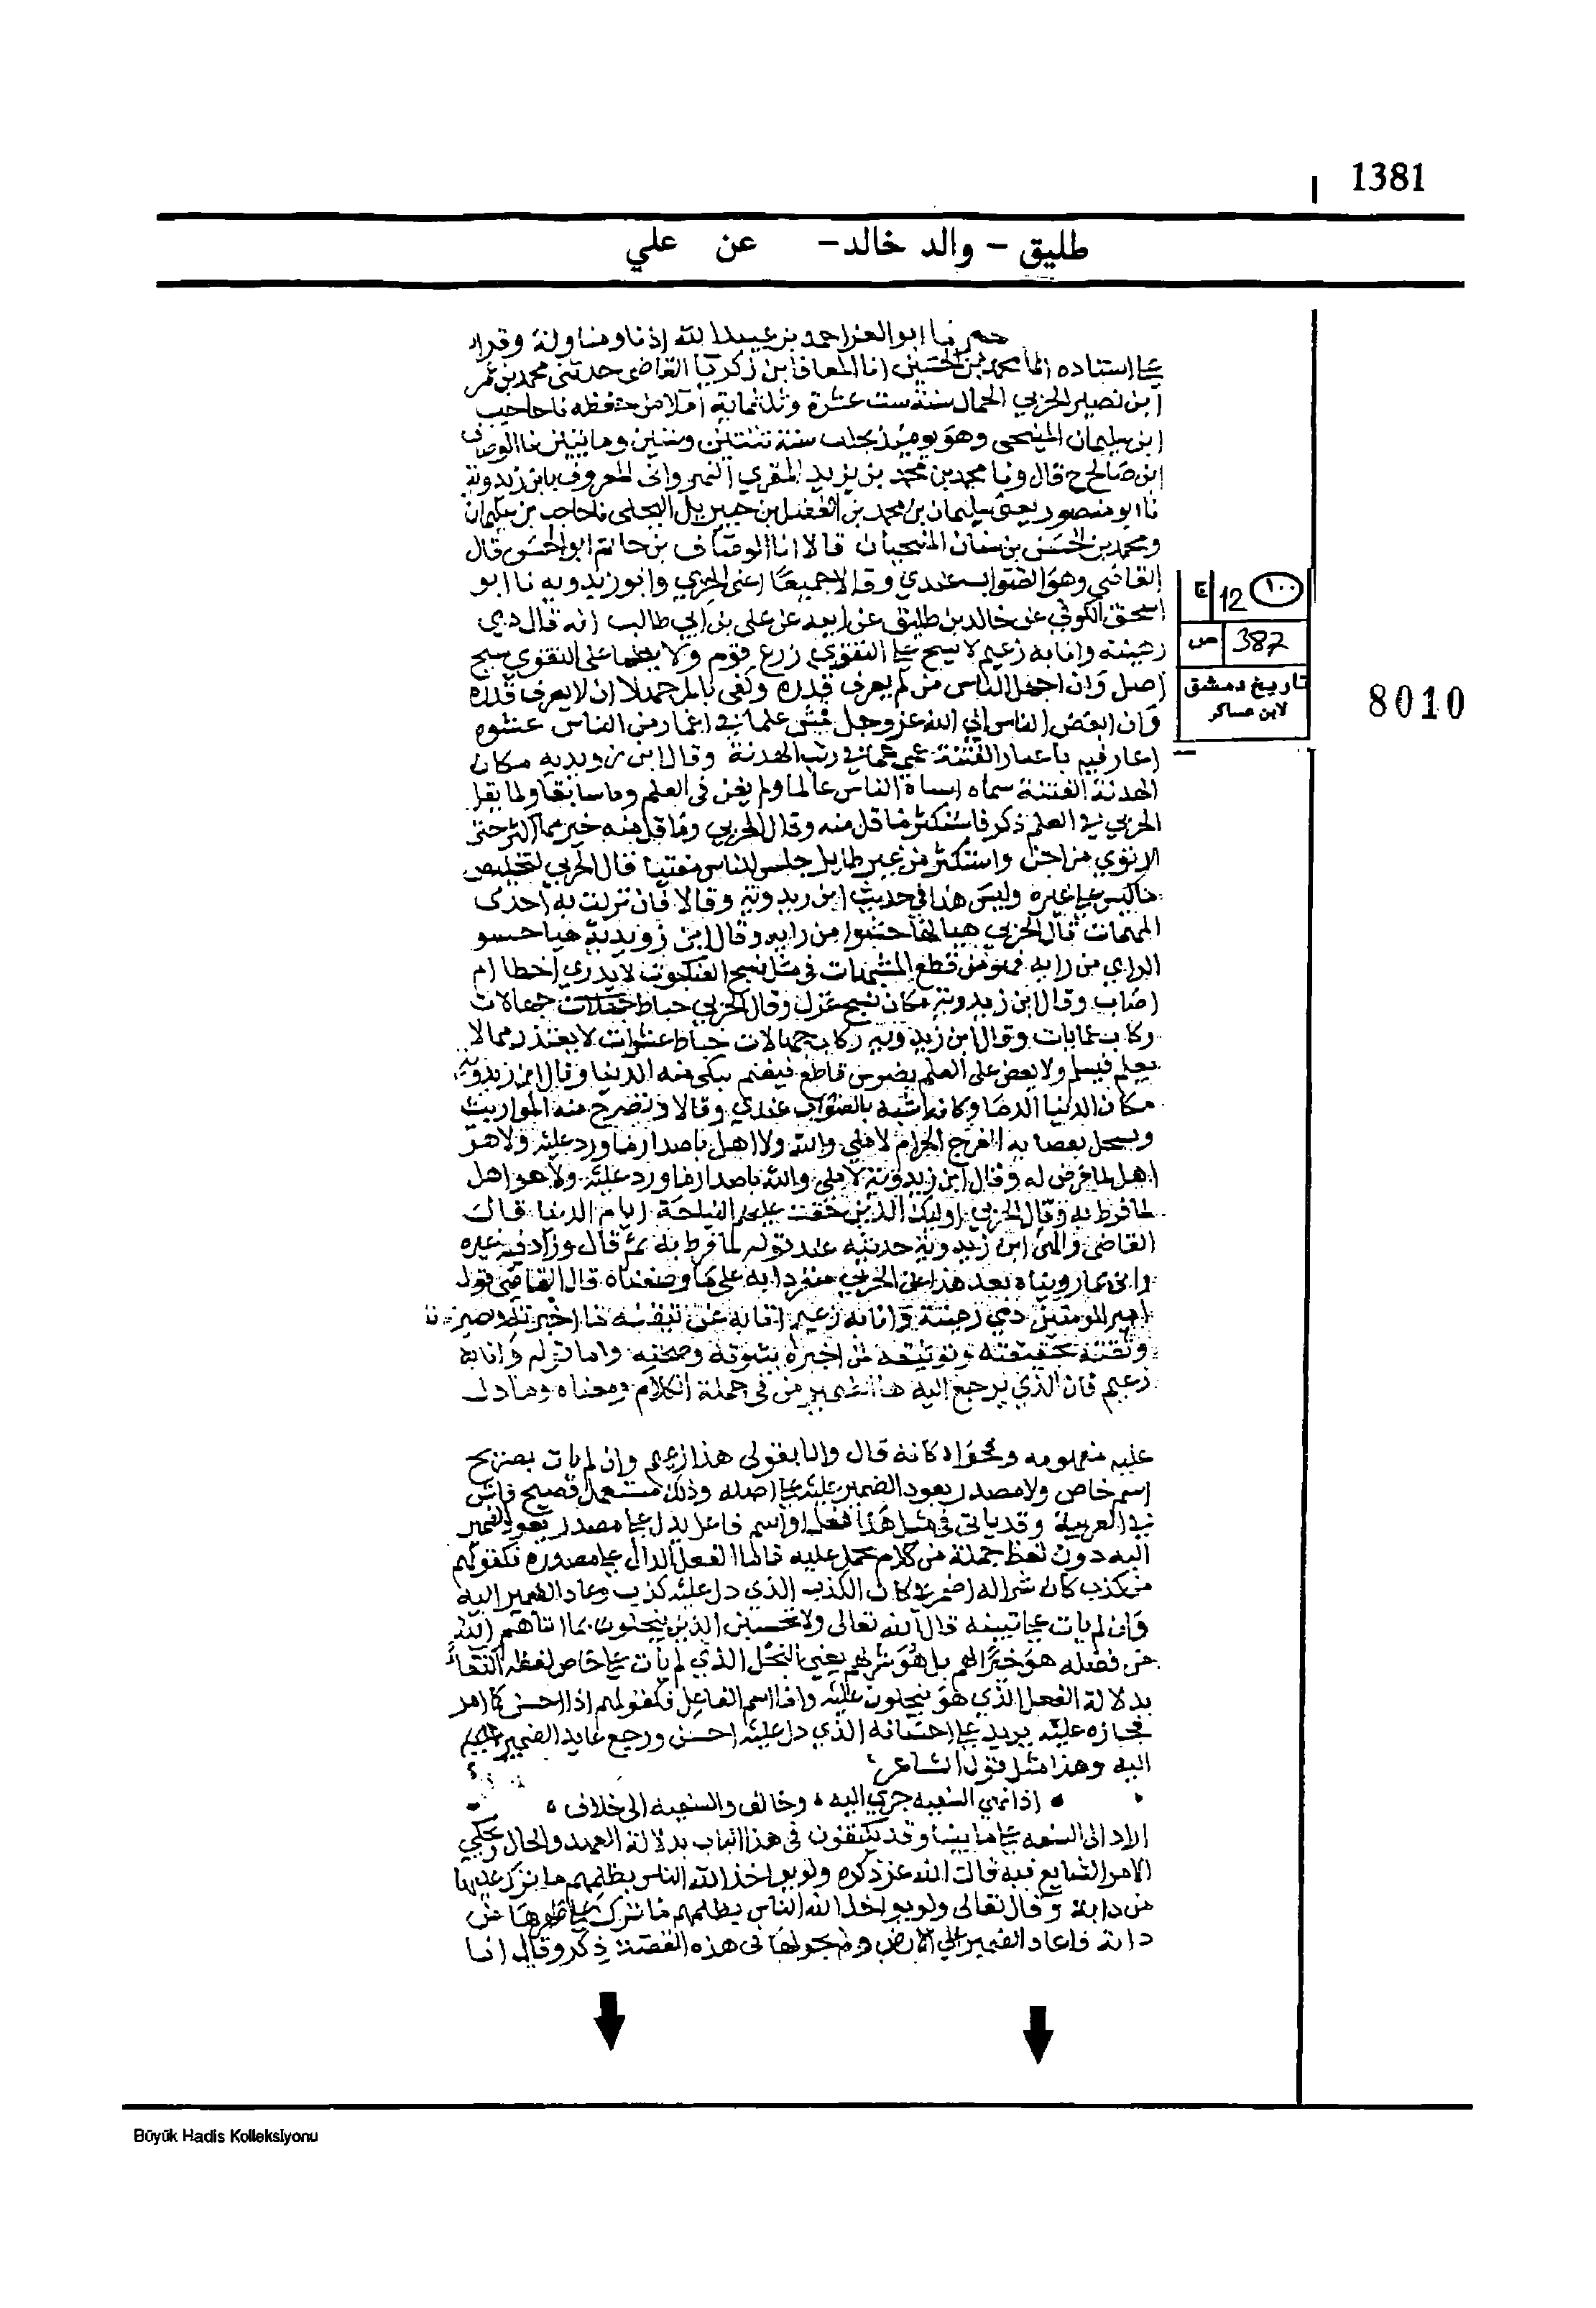 1381
طليق - والد خالد - عن علي
نا ابو العز احمد بن عبيد الله اذنا ومناولة وقرا
علي اسناده انا محمد بن الحسين انا المعافا بن زكريا القاضي حدثني محمد بن عمر
ابن نصير الحربي الحمال سنة ست عشرة وثلثماية املا من حفظه نا حاجب
ابن سليمان المنبجي وهو يوميذ بحلب سنة ثنتين وستين وماتيين نا الوصاف
ابن صالح ح قال ونا محمد بن محمد بن يزيد المقري النهرواني المعروف بابن زيدويه
نا ابو منصور يعني سليمان بن محمد بن الفضل بن جبريل البجلي نا حاجب بن سليمان
ومحمد بن الحسن بن سنان المنبجيان قالا انا الوصاف بن حاتم ابو الحسن قال
القاضي وهو الصواب عندي وقالا جميعا اعني الحربي وابن زيدويه نا ابو
اسحق الكوفي عن خالد بن طليق عن ابيه عن علي بن ابي طالب انه قال ذمتي
رهينة وانا به زعيم لا يهيج علي التقوي زرع قوم ولا يظما على التقوي سنخ
اصل وان اجهل الناس من لم يعرف قدره وكفى بالمرء جهلا ان لا يعرف قدره
وان ابغض الناس الي الله عز وجل قمش علما في اغمار من الناس عشوه
اغار فيه باغمار الفتنة عمي عما في ريب الهدنة وقال ابن زيدويه مكان
الهدنة الفتنة سماه اشباه الناس عالما ولم يغن في العلم يوما سالما وقال
الحربي في العلم ذكر فاستكثر ما قل منه وقال الحربي وما قل منه خير مما اكثر حتى
اذا ارتوي من اجن واستكثر من غير طايل جلس للناس مفتيا قال الحربي لتخليص
ما لبس علي غيره وليس هذا في حديث ابن زيدويه وقالا فان نزلت به احدى
المبهمات قال الحربي هيا لها حشوا من رايه وقال ابن زيدويه هيا حشو
الراي من رايه فهو من قطع المشبهات في مثل نسج العنكبوت لا يدري اخطا ام
اصاب وقال ابن زيدويه مكان نسج غزل وقال الحربي خباط جهالات
ركاب عمايات وقال ابن زيدويه ركاب جهالات خباط عشوات لا يعتذر مما لا
يعلم فيسلم ولا يعض على العلم بضرس قاطع فيغنم تبكي منه الدنيا وقال ابن زيدويه
مكان الدنيا الدما وكانه اشبه بالصواب عندي وقالا وتصرخ منه المواريث
ويستحل بقضايه الفرج الحرام لا ملي والله ولا اهل باصدار ما ورد عليه ولا هو
اهل لما فرض له وقال ابن زيدويه لا ملي والله باصدار ما ورد عليه ولا هو اهل
لما فرط به وقال الحربي اوليك الذين حقت عليهم النياحة ايام الدنيا قال
القاضي
امير المومنين ذمتي رهينة وانا به زعيم
زعيم فان الذي يرجع اليه هذا الضمير من في جملة الكلام ومعناه وما دل
عليه مفهومه وفحواه كانه قال وانا بقولي هذا زعيم وان لم يات بصريح
اسم خاص ولا مصدر يعود الضمير عليه علي اصله وذلك مستعمل فصيح فاش
في العربية وقد ياتي في مثل هذا فعل او اسم فاعل يدل علي مصدر يعود الضمير
اليه دون لفظ جملة من كلام يحمل عليه فاما الفعل الدال علي مصدره فكقولهم
من كذب كان شرا له اضمر في كان الكذب الذي دل عليه كذب وعاد الضمير اليه
وان لم يات علي تبيينه قال الله تعالى ولا تحسبن الذين يبخلون بما اتاهم الله
من فضله هو خيرا لهم بل هو شر لهم يعني البخل الذي لم يات علي خاص لفظه اكتفاء
بدلالة الفعل الذي هو يبخلون عليه واما اسم الفاعل فكقولهم اذا احسن كامر
فجازه عليه يريد علي احسانه الذي دل عليه احسن ورجع عايد الضمير
اليه وهذا مثل قول الشاعر
اذا نهي السفيه جري اليه وخالف والسفيه الى خلاف
اراد الى السفه علي ما بينا وقد يكتفون في هذا الباب بدلالة العهد والحال
الامر الشايع فيه قال الله عز ذكره ولو يواخذ الله الناس بظلمهم ما ترك عليها
من دابة وقال تعالى ولو يواخذ الله الناس بظلمهم ما ترك علي ظهرها من
دابة فاعاد الضمير الي الارض ولم يجر لها في هذه القصة ذكر وقال انا
١٠٠ 12 ج
387 ص
تاريخ دمشق
لابن عساكر
8010
Büyük Hadis Kolleksiyonu